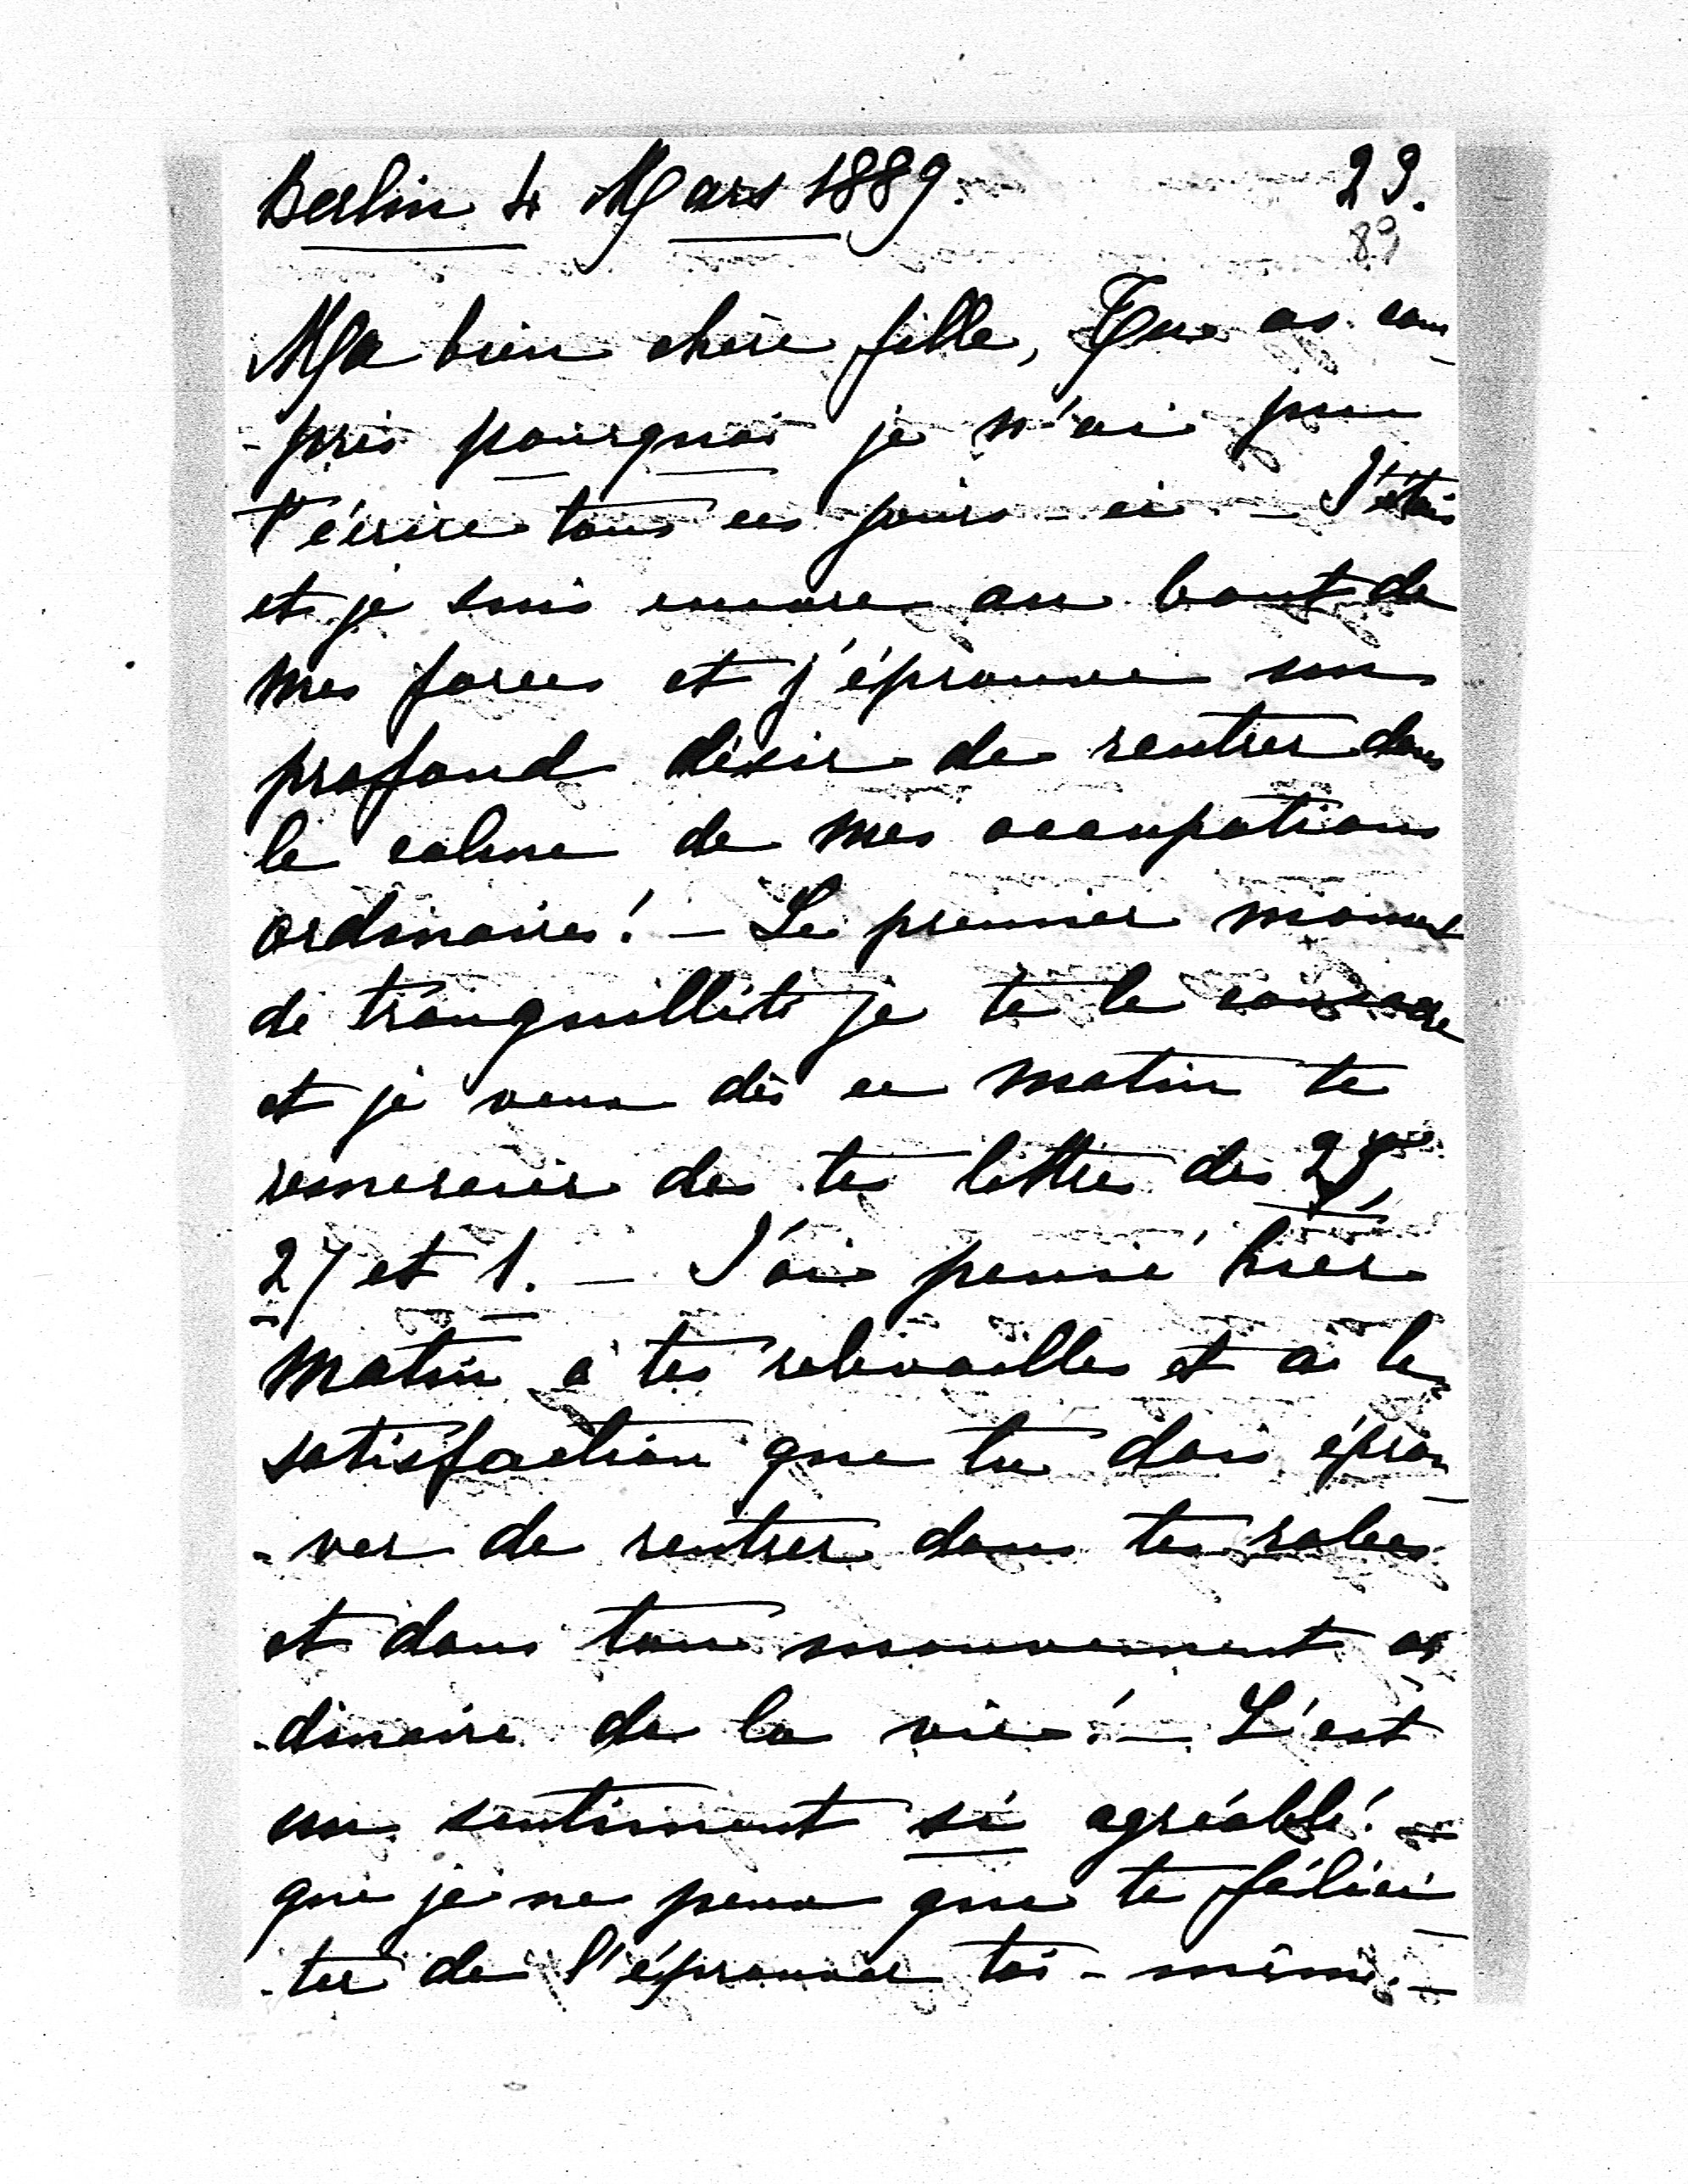 Berlin 4 Mars 1889. 23.
89
Ma bien chère fille, Tu as com
-pris pourquoi je n'ai pu
t'écrire tous ces jours-ci. - J'étais
et je suis encore au bout de
mes forces et j'éprouve un
profond désir de rentrer dans
le calme de mes occupations
ordinaires! - Le premier moment
de tranquillité je te le consacre
et je veux dès ce matin te
remercier de tes lettres des 25,
27 et 1. - J'ai pensé hier
matin à tes relevailles et à la
satisfaction que tu dois éprou
-ver de rentrer dans tes robes
et dans ton mouvement or
-dinaire de la vie! - C'est
un sentiment si agréable! -
que je ne peux que te félici
-ter de l'éprouver toi-même. -